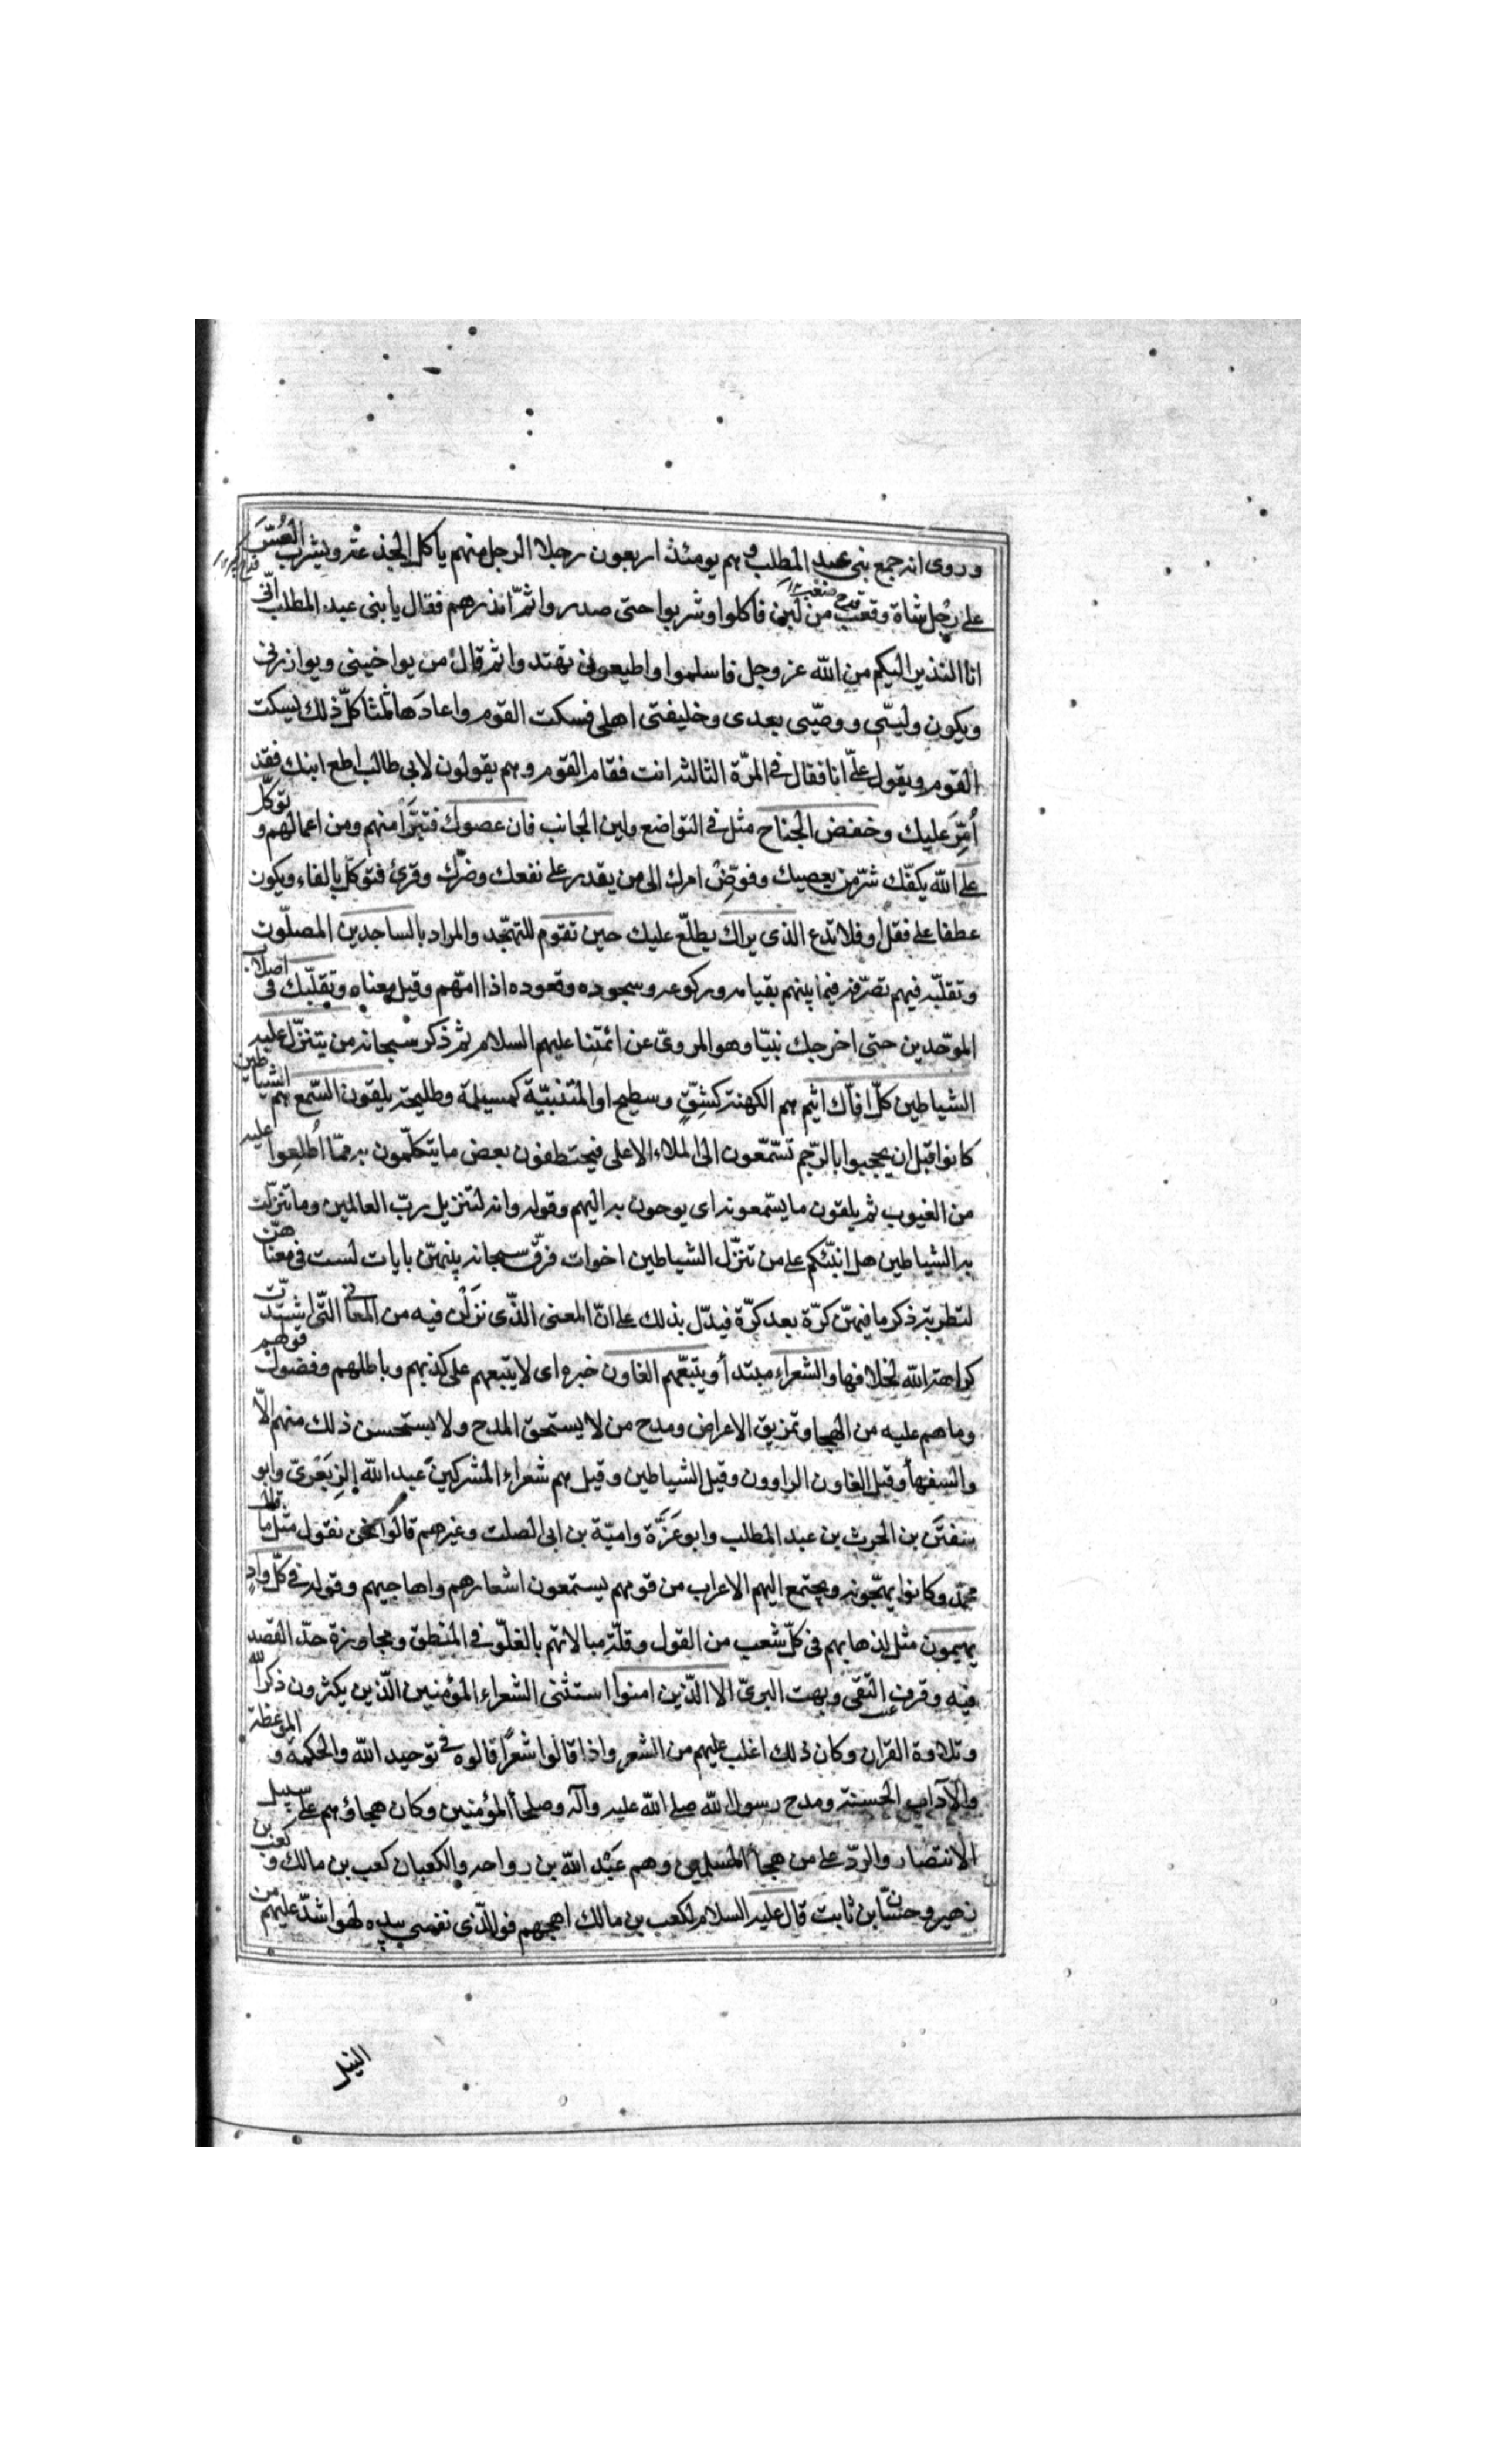 وروى انه جمع بنى عبد المطلب وهم يومئذ اربعون رجلا الرجل منهم ياكل الجذعة ويشرب العُسّ
قدح كبير
على رِجل شاة وقعب من لبن فاكلوا وشربوا حتى صدروا ثمّ انذرهم فقال يا بنى عبد المطلب انّى
قدح صغير
انا النذير اليكم من الله عز وجل فاسلموا واطيعونى تهتدوا ثم قال من يواخينى ويوازرنى
ويكون وليّى ووصيّى بعدى وخليفتى اهلى فسكت القوم واعادها ثلثا كلّ ذلك يسكت
القوم ويقول علىّ انا فقال فى المرّة الثالثة انت فقام القوم وهم يقولون لابى طالب اطع ابنك فقد
اُمّر عليك وخفض الجناح مثل فى التواضع ولين الجانب فان عصوك فتبرّأ منهم ومن اعمالهم وتوكّل
على الله يكفّك شرّ من يعصيك وفوّض امرك الى من يقدر على نفعك وضرّك وقرئ فتوكّل بالفاء ويكون
عطفا على فقل او فلا تدع الذى يراك يطلّع عليك حين تقوم للتهجّد والمراد بالساجدين المصلّون
وتقلّبه فيهم تصرّفه فيما بينهم بقيامه وركوعه وسجوده وقعوده اذا امّهم وقيل معناه وتقلّبك فى اصلاب
الموحّدين حتى اخرجك نبيّا وهو المروىّ عن ائمّتنا عليهم السلام ثم ذكر سبحانه من يتنزّل عليه
الشياطين كلّ افّاك اثيم هم الكهنة كشِقّ وسطيح او المتنبّية كمسيلمة وطليحة يلقون السّمع هم الشياطين
كانوا قبل ان يحجبوا بالرّجم تسّمّعون الى الملاء الاعلى فيختطفون بعض ما يتكلّمون به ممّا اُطلعوا عليه
من الغيوب ثم يلقون ما يسّمعونه اى يوحون به اليهم وقوله وانه لتنزيل ربّ العالمين وما تنزّلت
به الشياطين هل انبّئكم على من تنزّل الشياطين اخوات فرّق سبحانه بينهنّ بايات لست فى معناهنّ
لتطرية ذكر ما فيهنّ كرّة بعد كرّة فيدّل بذلك على انّ المعنى الذّى نَزَلْن فيه من المعانى التّى اشتدّت
كراهة الله لخلافها والشعراء مبتدأ ويتبعّهم الغاون خبره اى لا يتبعهم على كذبهم وباطلهم وفضول قولهم
وما هم عليه من الهجا وتمزيق الاعراض ومدح من لا يستحق المدح ولا يستحسن ذلك منهم الّا
والسفهأ وقيل الغاون الراوون وقيل الشياطين وقيل هم شعراء المشركين عبد الله الزِبَعْرى وابو
سفين بن الحرث بن عبد المطلب وابو عَزَّة واميّة بن ابى الصلت وغيرهم قالوا نحن نقول مثل ما قال
محمّد وكانوا يهجّونه ويجتمع اليهم الاعراب من قومهم يستمعون اشعارهم واهاجيهم وقوله فى كلّ وادٍ
يهيمون مثل لذهابهم فى كلّ شعب من القول وقلّة مبالاتهم بالغلّو فى المنطق ومجاوزة حدّ القصد
فيه وقرف التقى وبهت البرىّ الا الذّين امنوا استثنى الشعراء المؤمنين الذّين يكثرون ذكر الله
وتلاوة القران وكان ذلك اغلب عليهم من الشعر واذا قالوا شعرًا قالوه فى توحيد الله والحكمة والموعظة
والآداب الحسنة ومدح رسول الله صلى الله عليه وآله وصلحأ المؤمنين وكان هجاؤهم على سبيل
الانتصار والردّ على من هجأ المسلمين وهم عبد الله بن رواحه والكعبان كعب بن مالك وكعب بن
زهير وحسّان بن ثابت قال عليه السلام لكعب بن مالك اهجهم فوالذّى نفسى بيده لهو اشدّ عليهم من
النبل